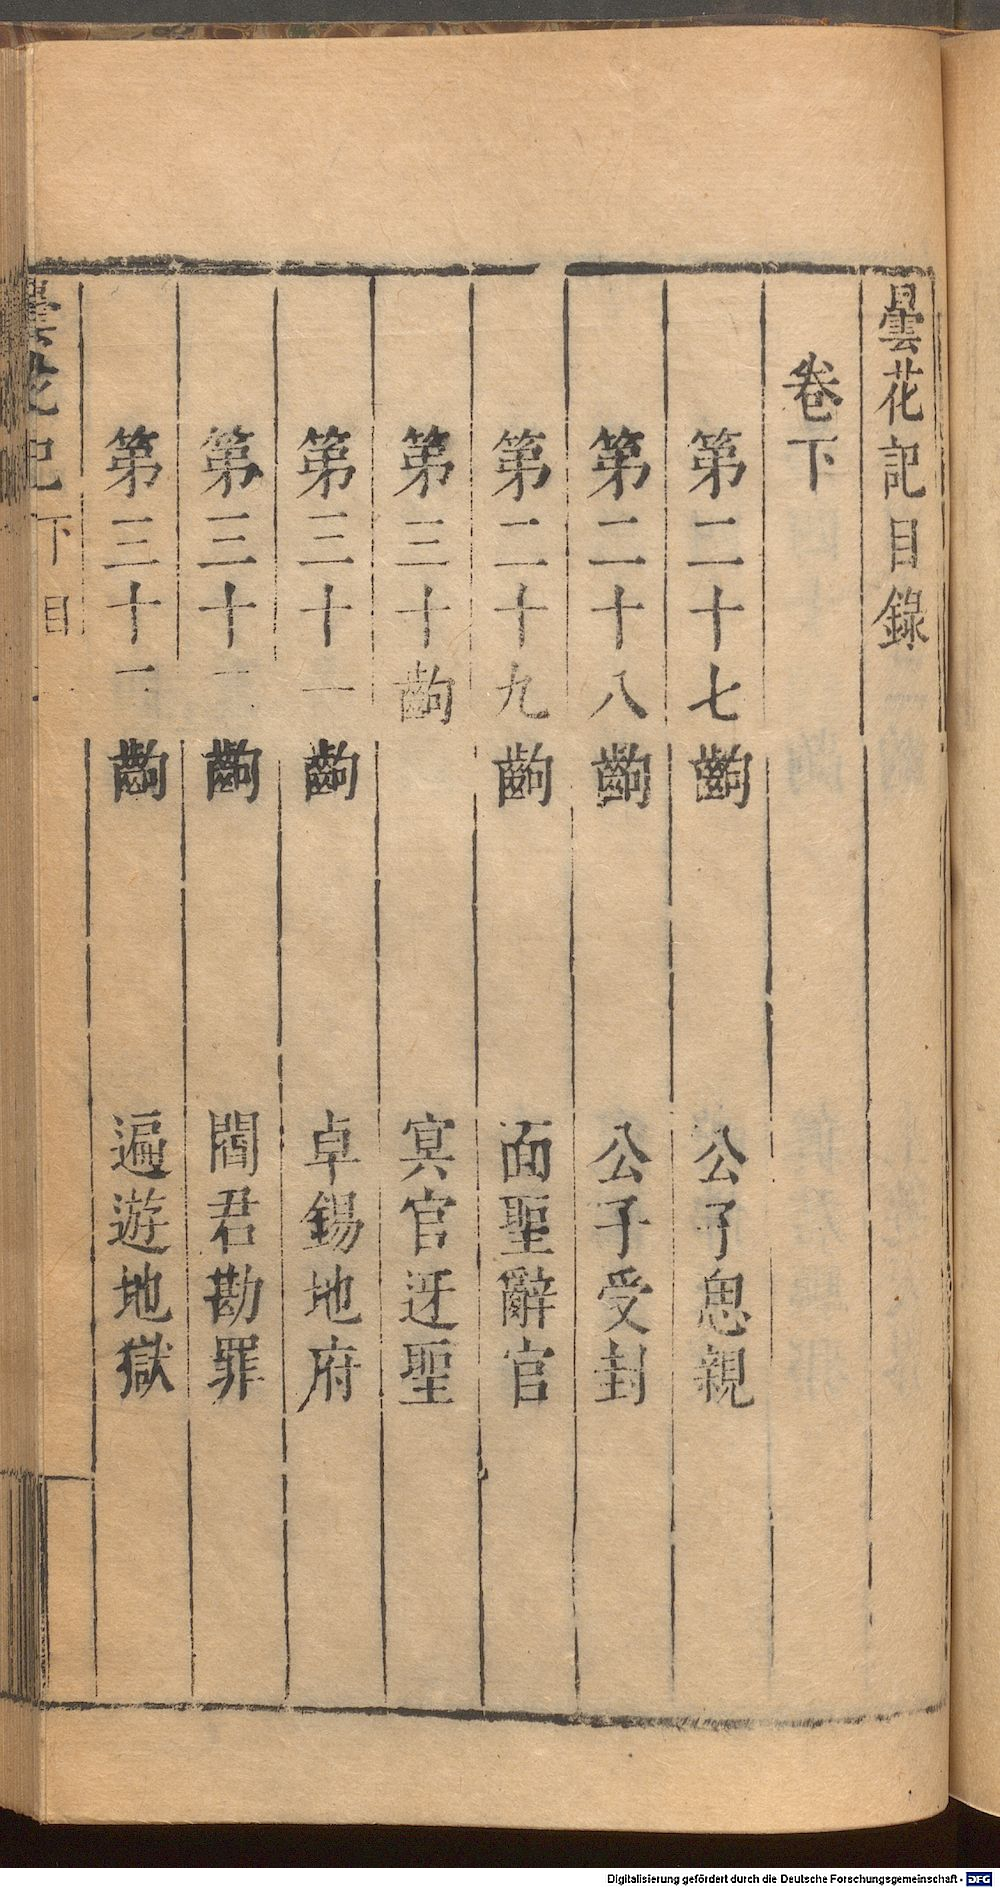 曇花記目錄
卷下
第二十七齣 公子思親
第二十八齣 公子受封
第二十九齣 面聖辭官
第三十齣 冥官迓聖
第三十一齣 卓錫地府
第三十二齣 閻君勘罪
第三十三齣 遍遊地獄
曇花記 下目 一
Digitalisierung gefördert durch die Deutsche Forschungsgemeinschaft - DFG